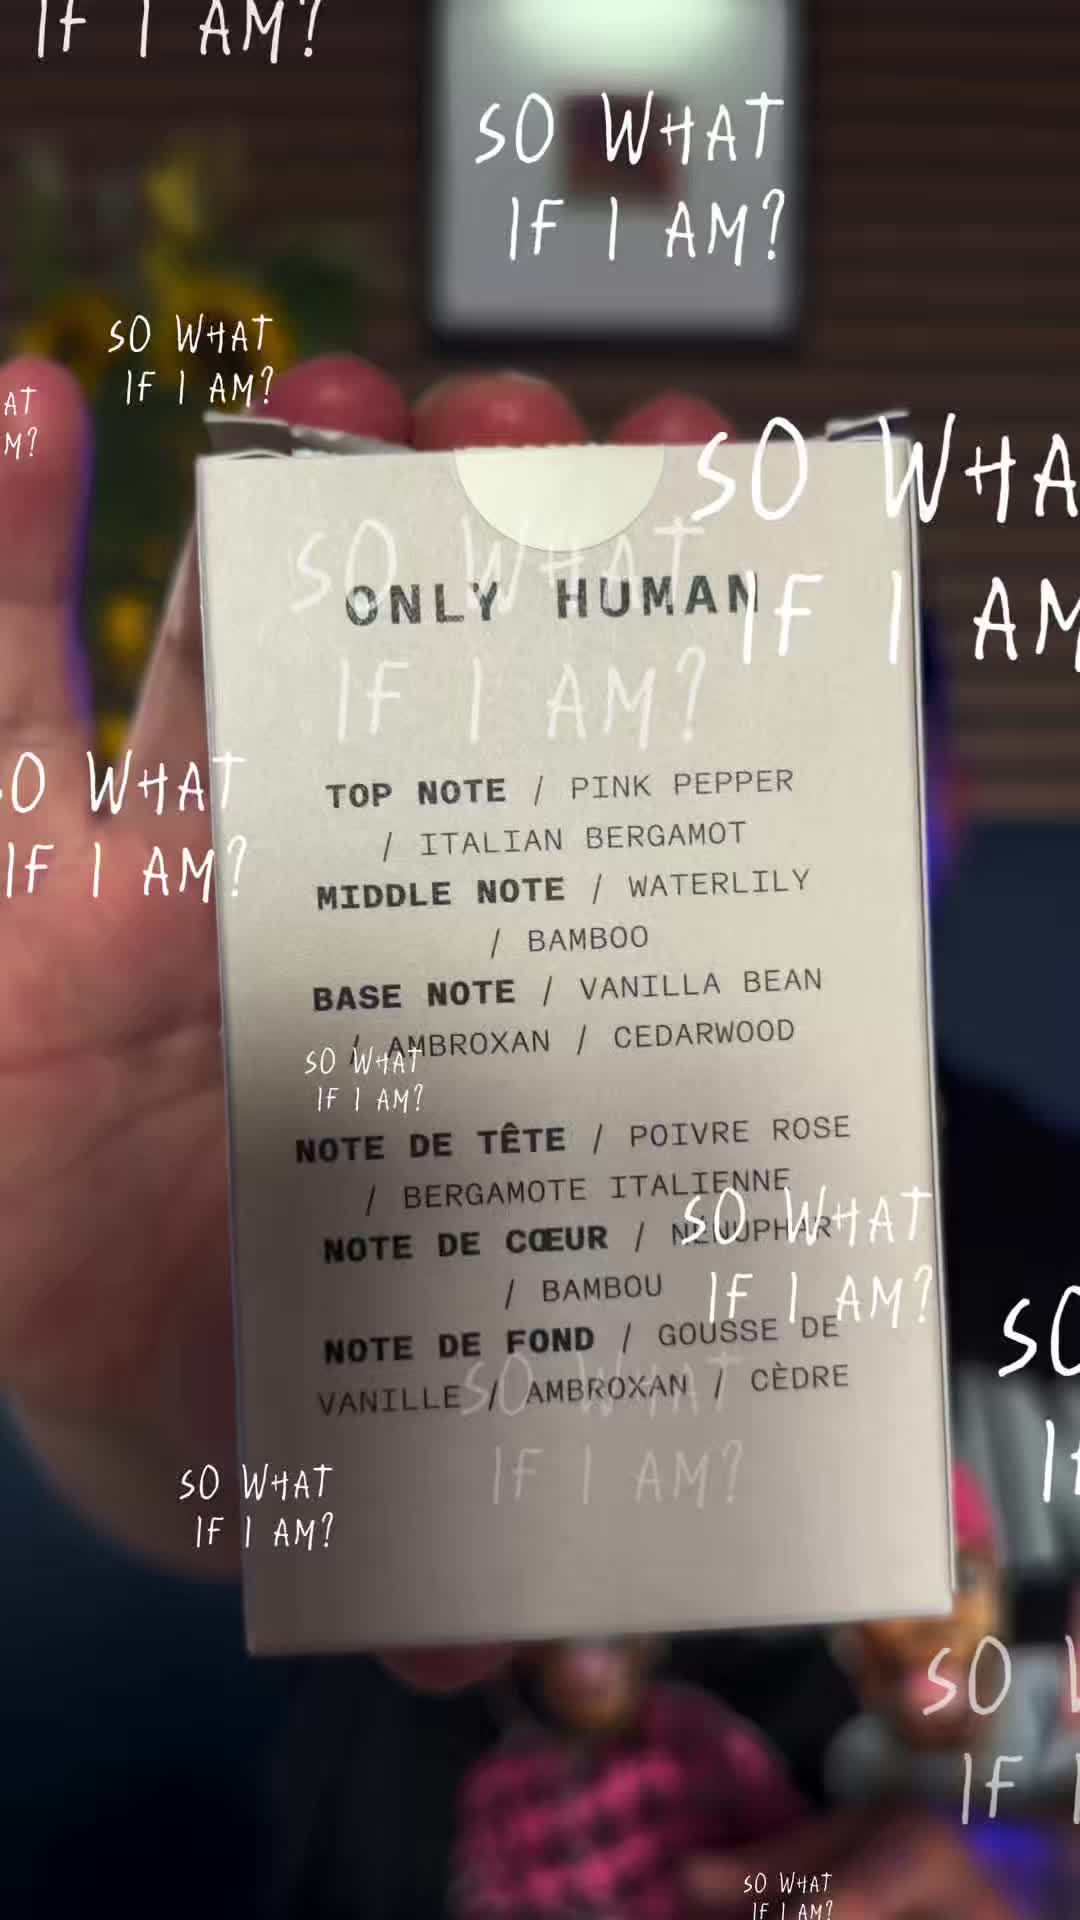 IF I AM?
SO WHAT
IF I AM?
SO WHAT
IF I AM?
AT
M?
SO WHA
IF I AM
SO WHAT
IF I AM?
ONLY HUMAN
SO WHAT
IF I AM?
TOP NOTE / PINK PEPPER
/ ITALIAN BERGAMOT
MIDDLE NOTE / WATERLILY
/ BAMBOO
BASE NOTE / VANILLA BEAN
/ AMBROXAN / CEDARWOOD
SO WHAT
IF I AM?
NOTE DE TÊTE / POIVRE ROSE
/ BERGAMOTE ITALIENNE
NOTE DE CŒUR / NÉNUPHAR
/ BAMBOU
NOTE DE FOND / GOUSSE DE
VANILLE / AMBROXAN / CÈDRE
SO WHAT
IF I AM?
SO WHAT
IF I AM?
SO
I
SO WHAT
IF I AM?
SO
IF
SO WHAT
IF I AM?